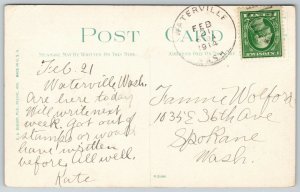 POST CARD
WATERVILLE
FEB
21
1914
WASH.
Feb. 21
Waterville, Wash.
Are here today
Will write next
week. Got out of
stamps or would
have written
before. All well.
Kate
Fannie Wolford
1035 E 36th Ave
Spokane
Wash.